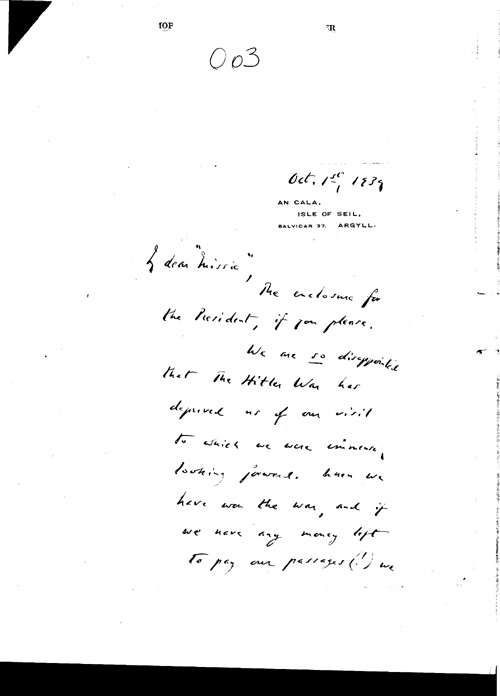 HOF
FR
003
Oct. 1st, 1939
AN CALA,
ISLE OF SEIL,
BALVICAR 37. ARGYLL.
My dear "Missie",
The enclosure for
the President, if you please.
We are so disappointed
that The Hitler War has
deprived us of our visit
to which we were
looking forward. When we
have won the war, and if
we have any money left
to pay our passages (!) we